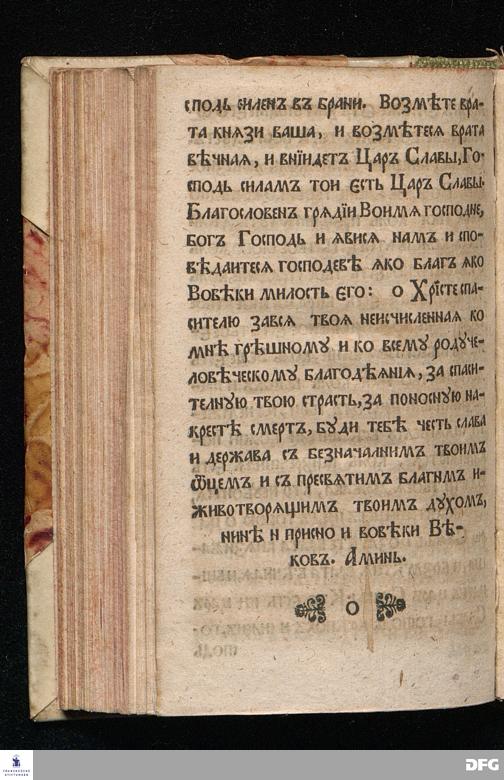 сподь силенъ въ брани. Возмѣте вра-
та князи ваша, и возмѣтеся врата
вѣчная, и внїидетъ Царъ Славы, Го-
сподь силамъ тои єсть Царъ Славы.
Благословенъ грядїи Воимя господне,
богъ Господь и явися намъ и спо-
вѣдаитеся господевѣ яко благъ яко
Вовѣки милость єго: о Хрїсте спа-
сителю зався твоя неисчисленная ко
мнѣ грѣшному и ко всему родуче-
ловѣческому благодѣянїя, за спаси-
телную твою страсть, за поносную на-
крестѣ смертъ, буди тебѣ честь слава
и держава съ безначалнимъ твоимъ
ѿцемъ и съ пресвятимъ благимъ и-
животворящимъ твоимъ духомъ,
нинѣ и присно и вовѣки Вѣ-
ковъ. Аминь.
FRANCKESCHE STIFTUNGEN
DFG